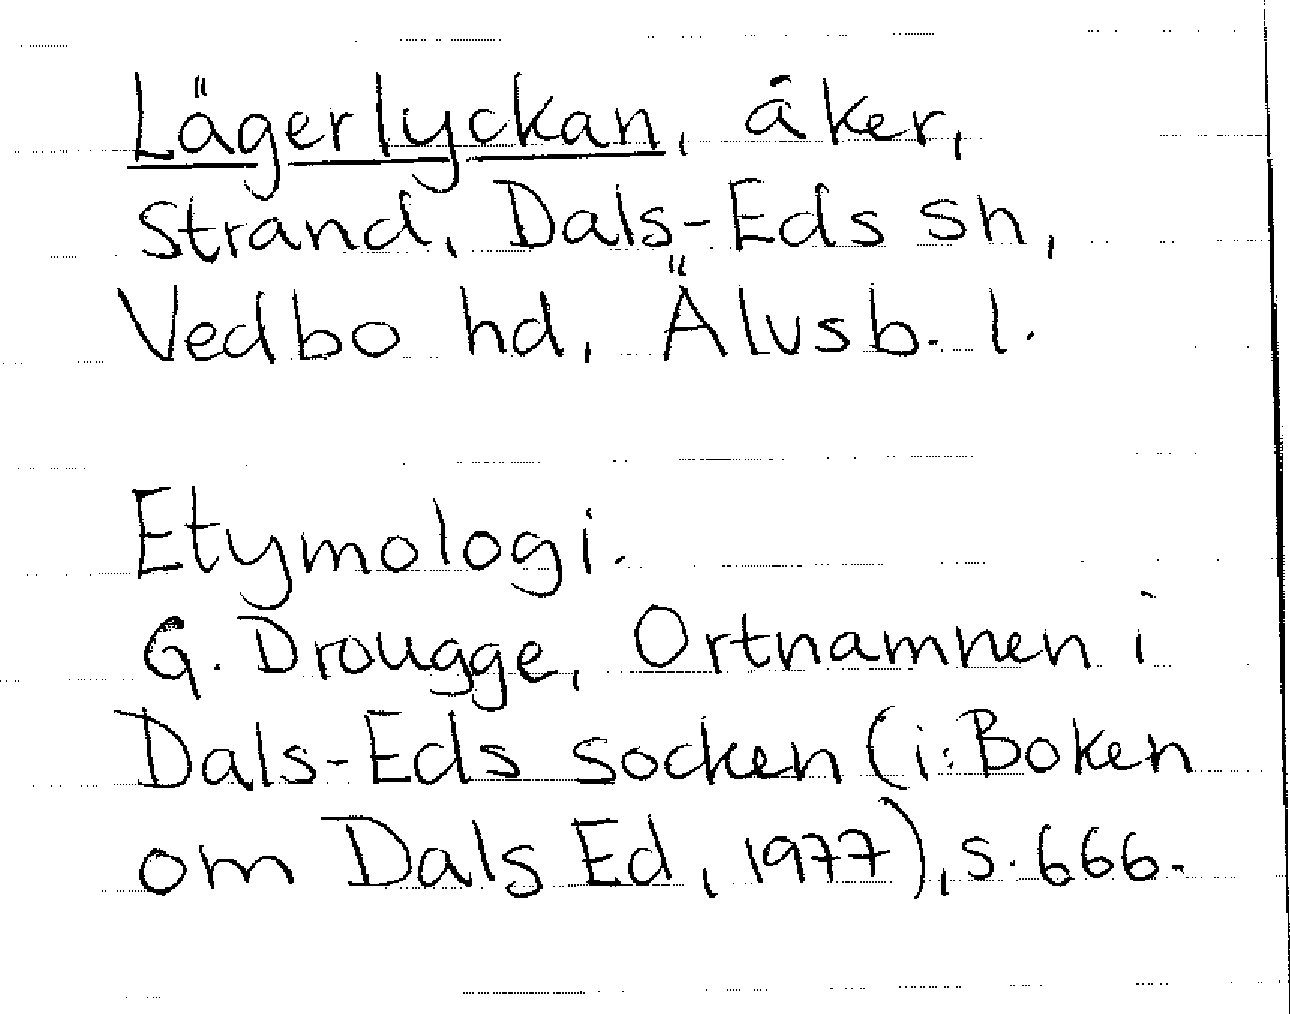 Lägerlyckan, åker,
Strand, Dals-Eds sn,
Vedbo hd, Älvsb. l.
Etymologi.
G. Drougge, Ortnamnen i
Dals-Eds socken (i: Boken
om Dals Ed, 1977), s. 666.